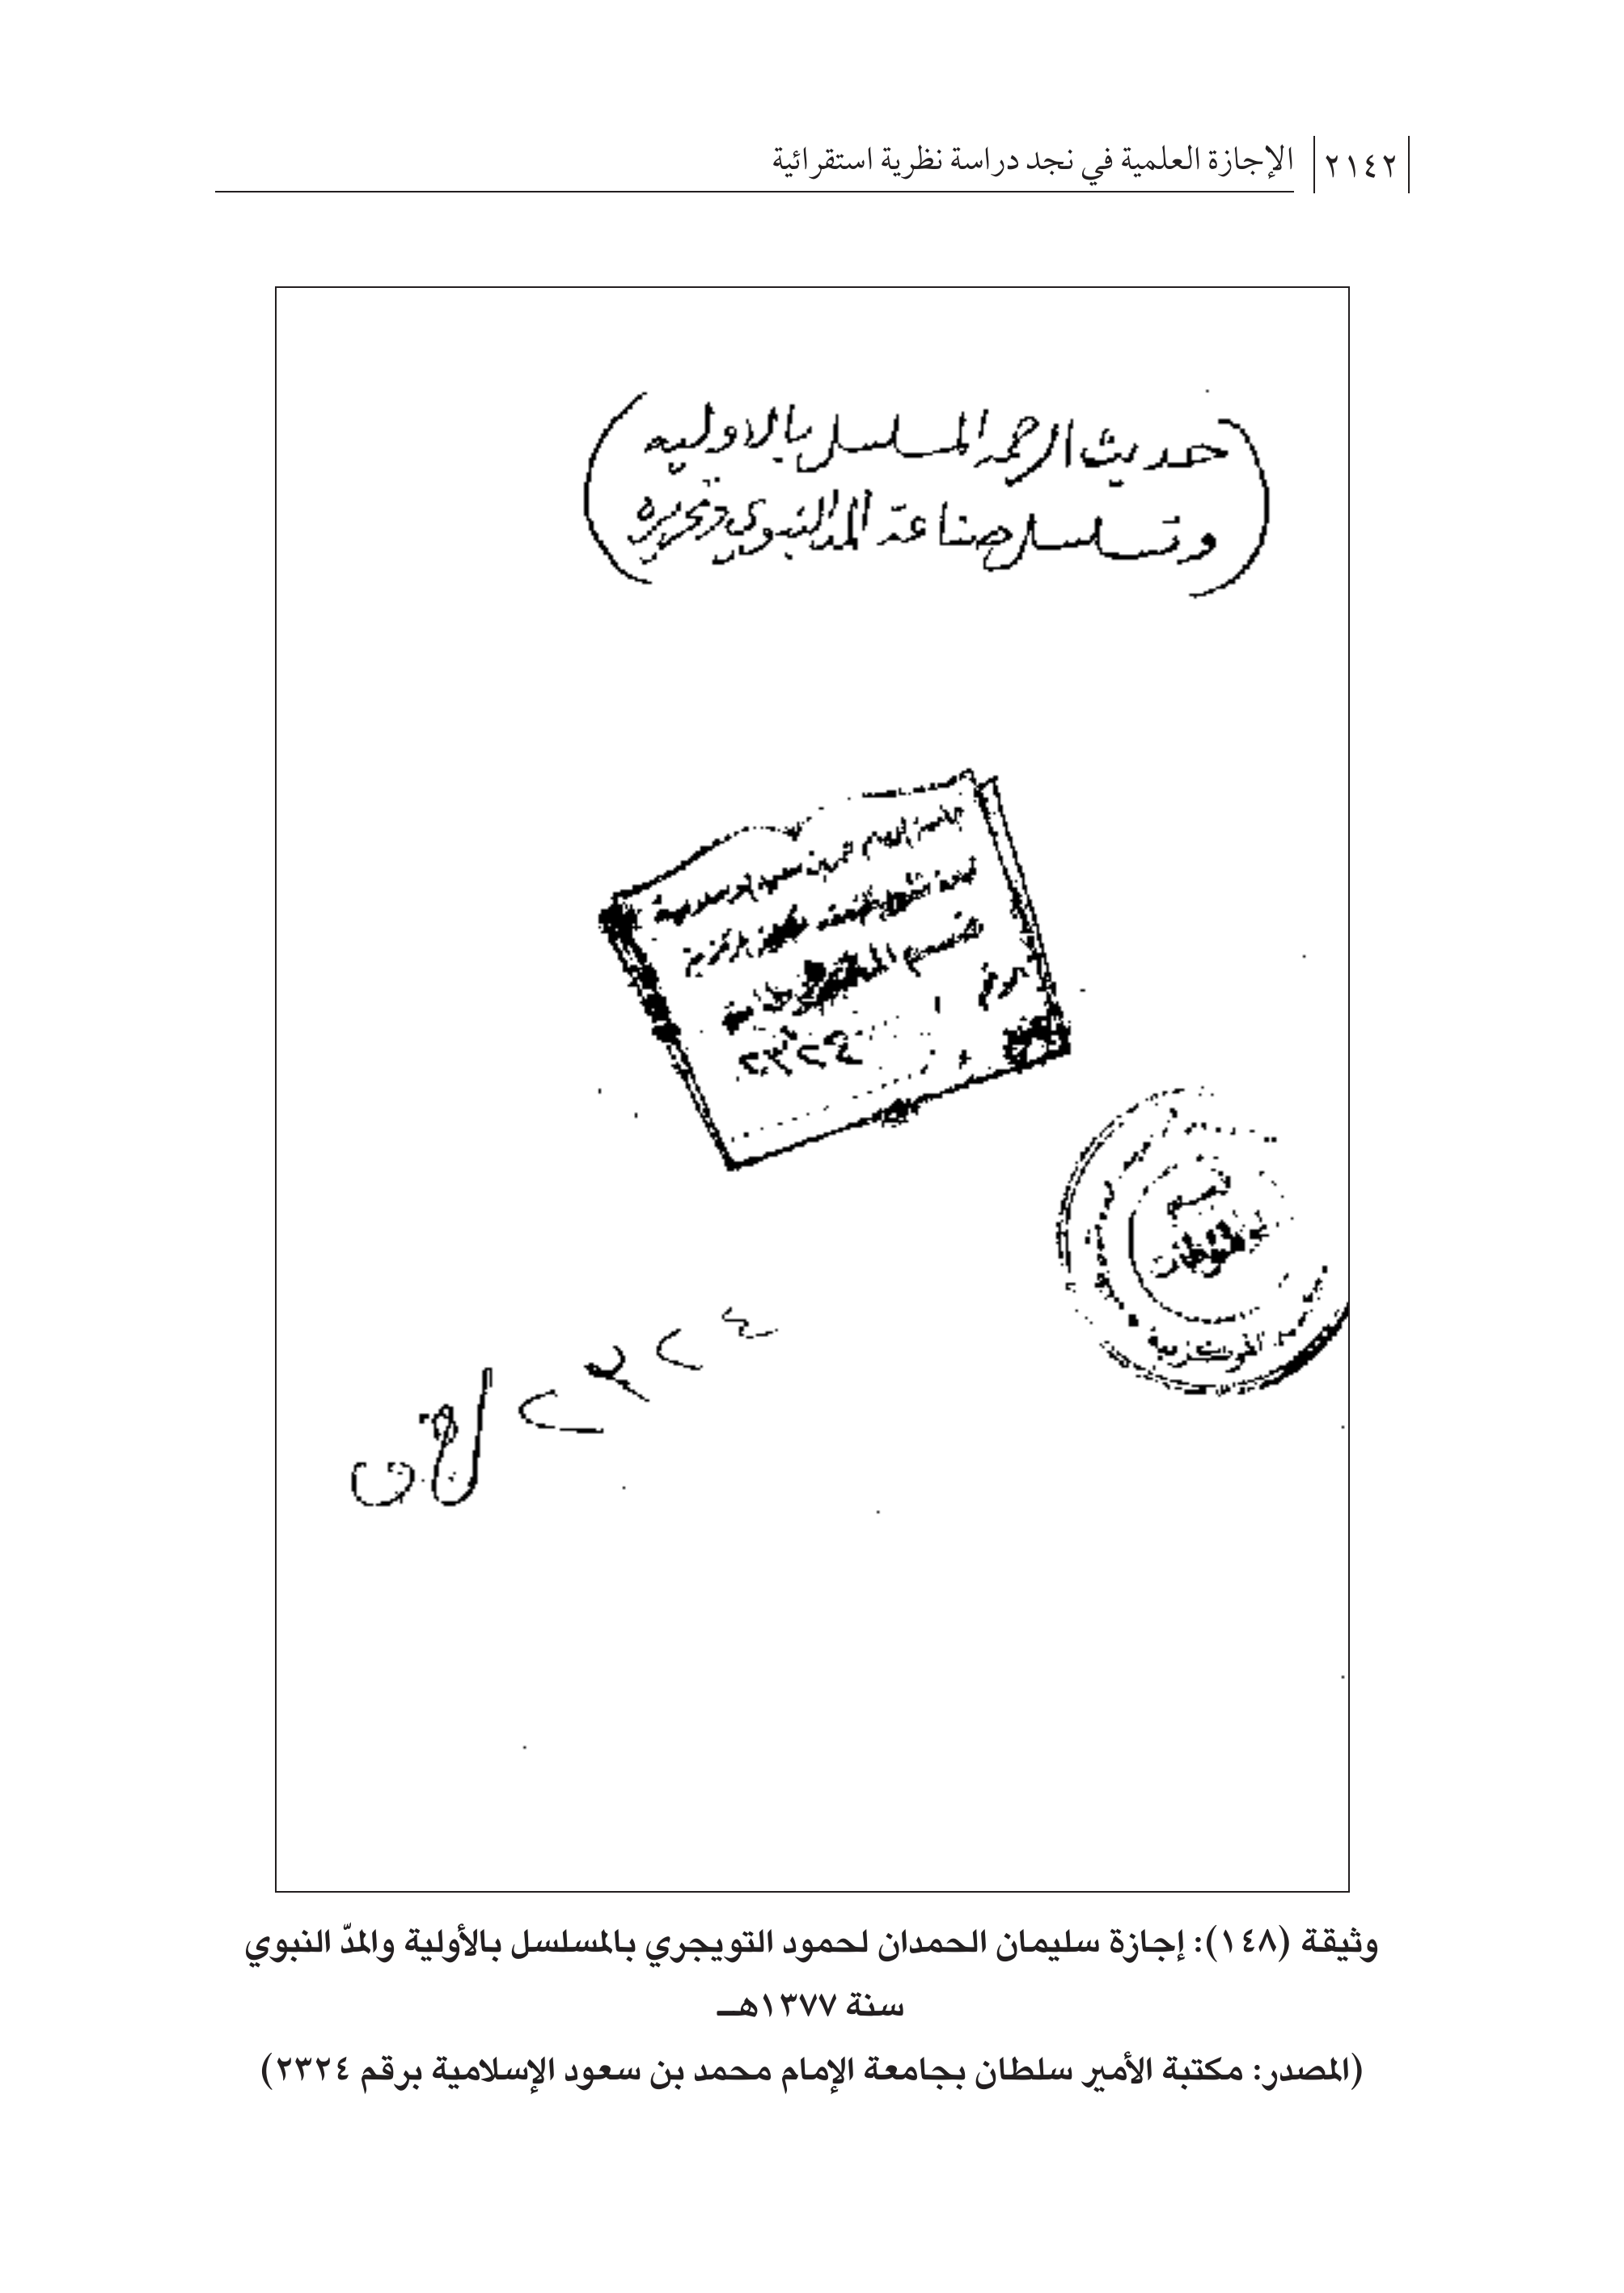 ٢١٤٢ الإجازة العلمية في نجد دراسة نظرية استقرائية
(حديث الرحمه المسلسل بالاوليه
وتسلسل صناعة المد النبوي وتحريره)
قسم
الرقم
٢٣٢٤
قسم
المركزية
٢٣٢٤
وثيقة (١٤٨): إجازة سليمان الحمدان لحمود التويجري بالمسلسل بالأولية والمدّ النبوي
سنة ١٣٧٧هـ
(المصدر: مكتبة الأمير سلطان بجامعة الإمام محمد بن سعود الإسلامية برقم ٢٣٢٤)